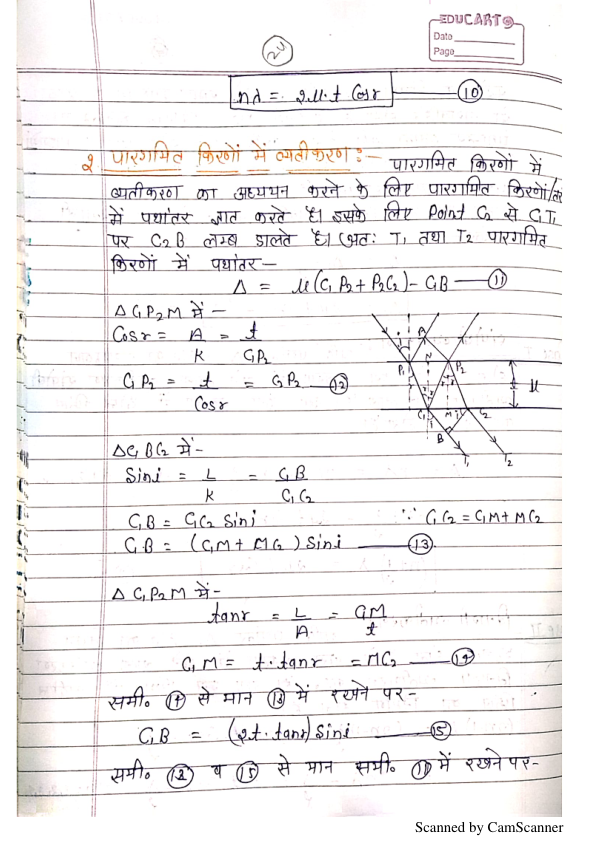 EDUCART
Date
Page
24
nλ = 2μ.t Cosr — (10)
2 पारगमित किरणों में व्यतीकरण :- पारगमित किरणों में
व्यतीकरण का अध्ययन करने के लिए पारगमित किरणों/
में पथांतर ज्ञात करते है। इसके लिए Point C2 से C1T1
पर C2B लम्ब डालते है। अतः T1 तथा T2 पारगमित
किरणों में पथांतर —
Δ = μ(C1P2 + P2C2) - C1B — (11)
Δ C1P2M में -
Cosr = A/K = t/C1P2
C1P2 = t/Cosr = C1P2 — (12)
A
i
N
P1
P2
r
t
μ
C1
M
C2
B
T1
T2
ΔC1BC2 में -
Sini = L/K = C1B/C1C2
C1B = C1C2 Sini ∵ C1C2 = C1M + MC2
C1B = (C1M + MC2) Sini — (13)
Δ C1P2M में -
tanr = L/A = C1M/t
C1M = t. tanr = MC2 — (14)
समी. (14) से मान (13) में रखने पर -
C1B = (2t. tanr) Sini — (15)
समी. (12) व (15) से मान समी. (11) में रखने पर -
Scanned by CamScanner